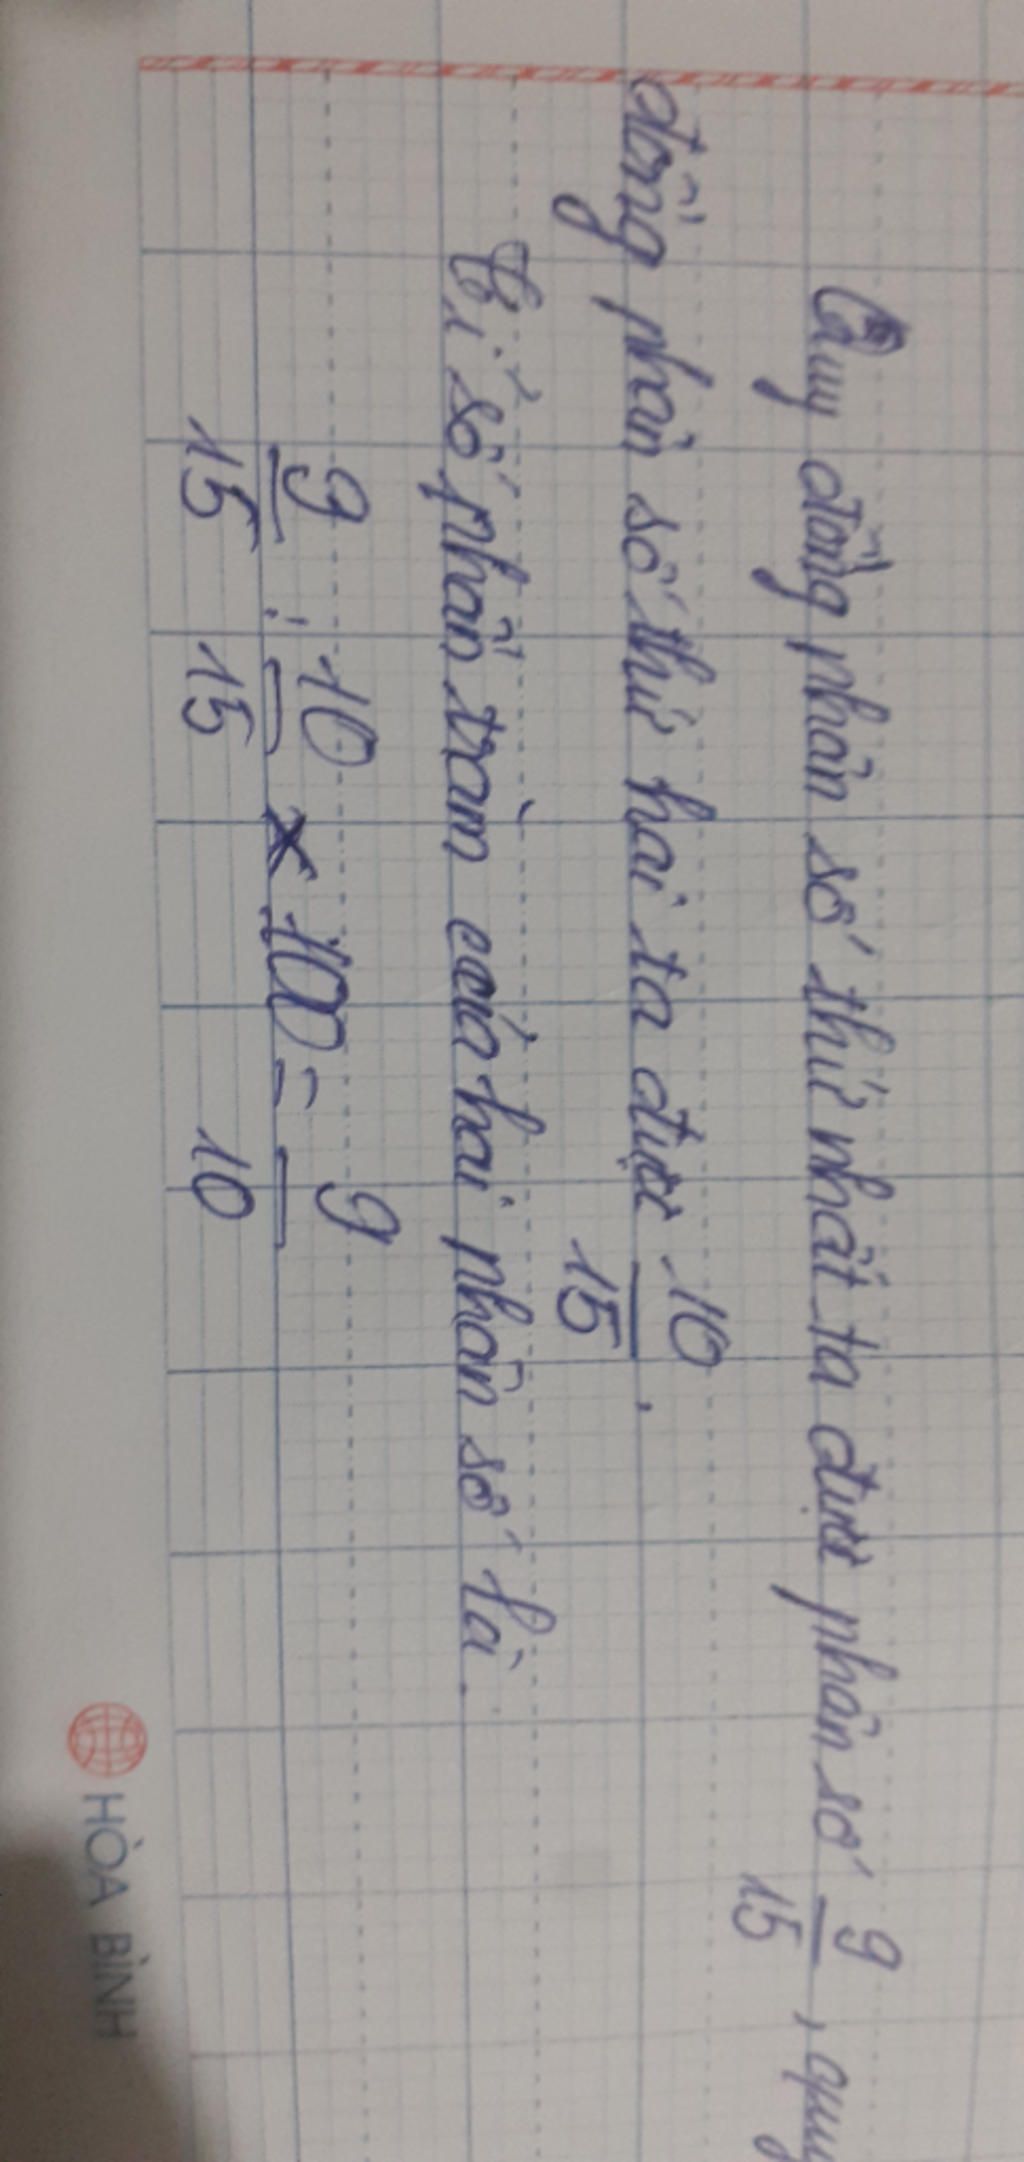 Quy đồng phân số thứ nhất ta được phân số 9/15, quy
đồng phân số thứ hai ta được 10/15.
Tỉ số phần trăm của hai phân số là.
9/15 : 10/15 x 100 = 9/10
HÒA BÌNH